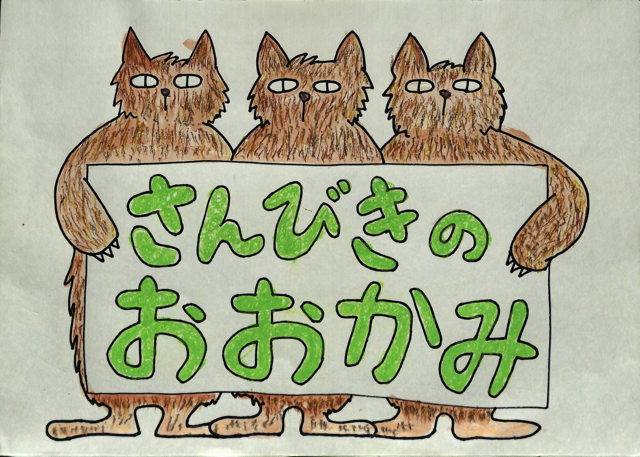 さんびきの
おおかみ